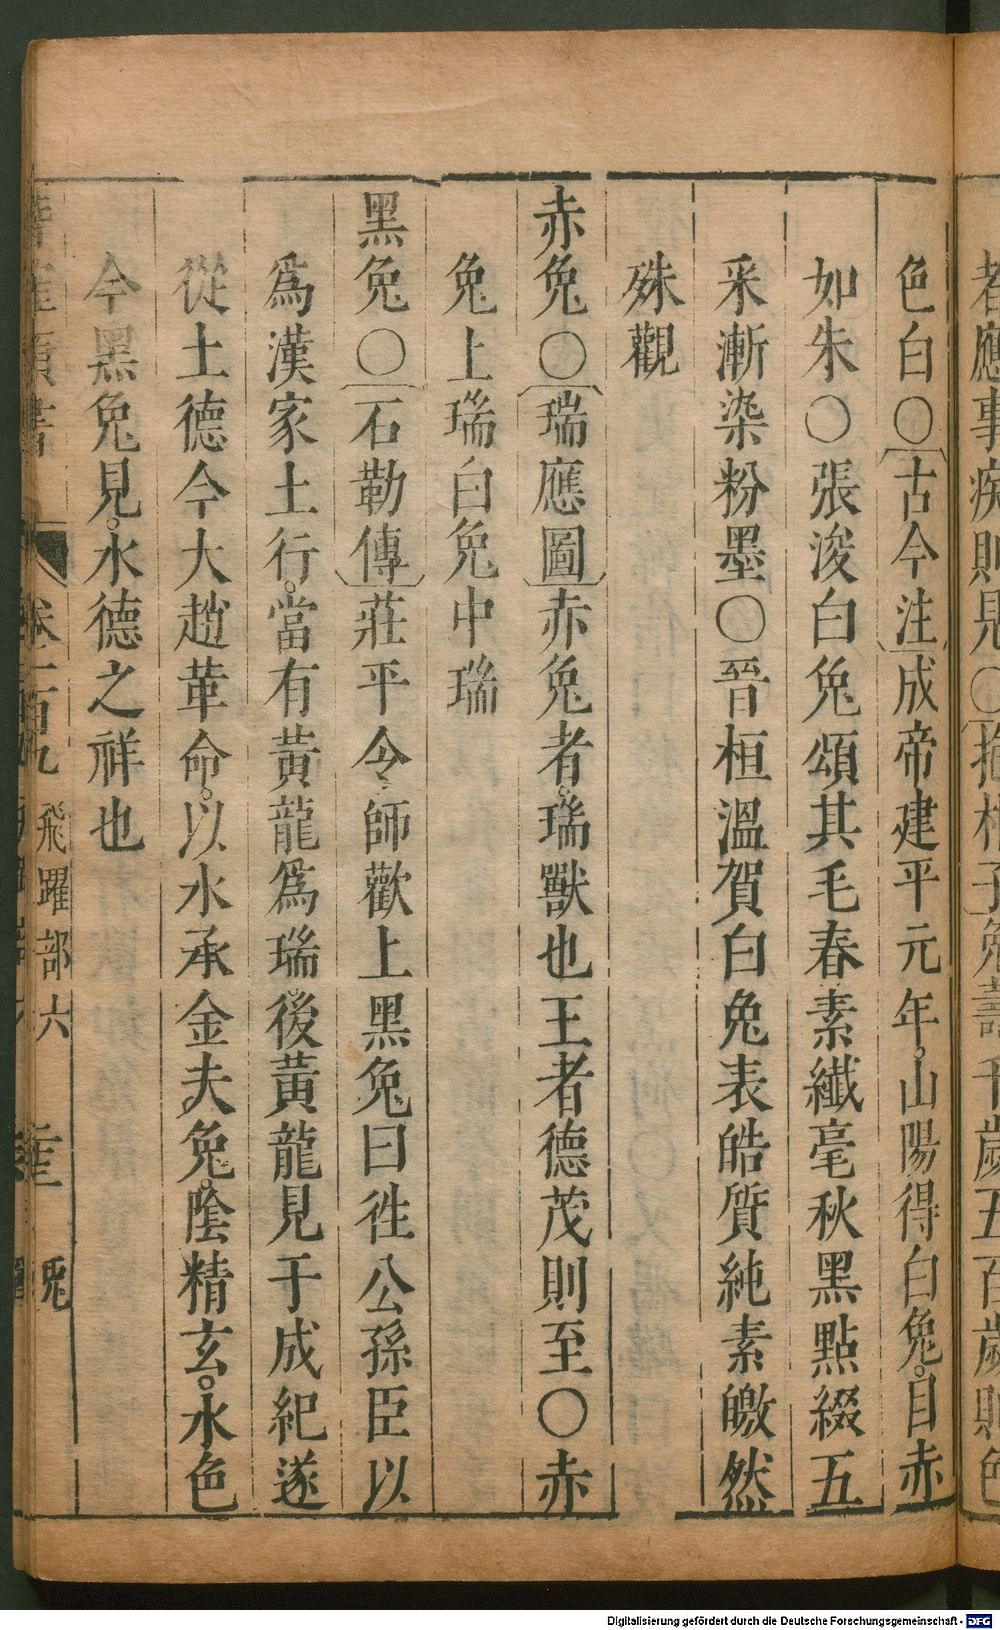 色白〇古今注成帝建平元年山陽得白兔。目赤
如朱〇張浚白兔頌其毛春素纖毫秋黑點綴五
采漸染粉墨〇晉桓溫賀白兔表皓質純素皦然
殊觀
赤兔〇瑞應圖赤兔者。瑞獸也王者德茂則至〇赤
兔上瑞白兔中瑞
黑兔〇石勒傳莊平令師歡上黑兔曰徃公孫臣以
爲漢家土行。當有黃龍爲瑞。後黃龍見于成紀遂
從土德今大趙革命。以水承金夫兔。陰精玄。水色
今黑兔見。水德之祥也
卷 百九 飛躍部六
者應事疾則見〇 兔壽千歲五百歲則色
Digitalisierung gefördert durch die Deutsche Forschungsgemeinschaft - DFG